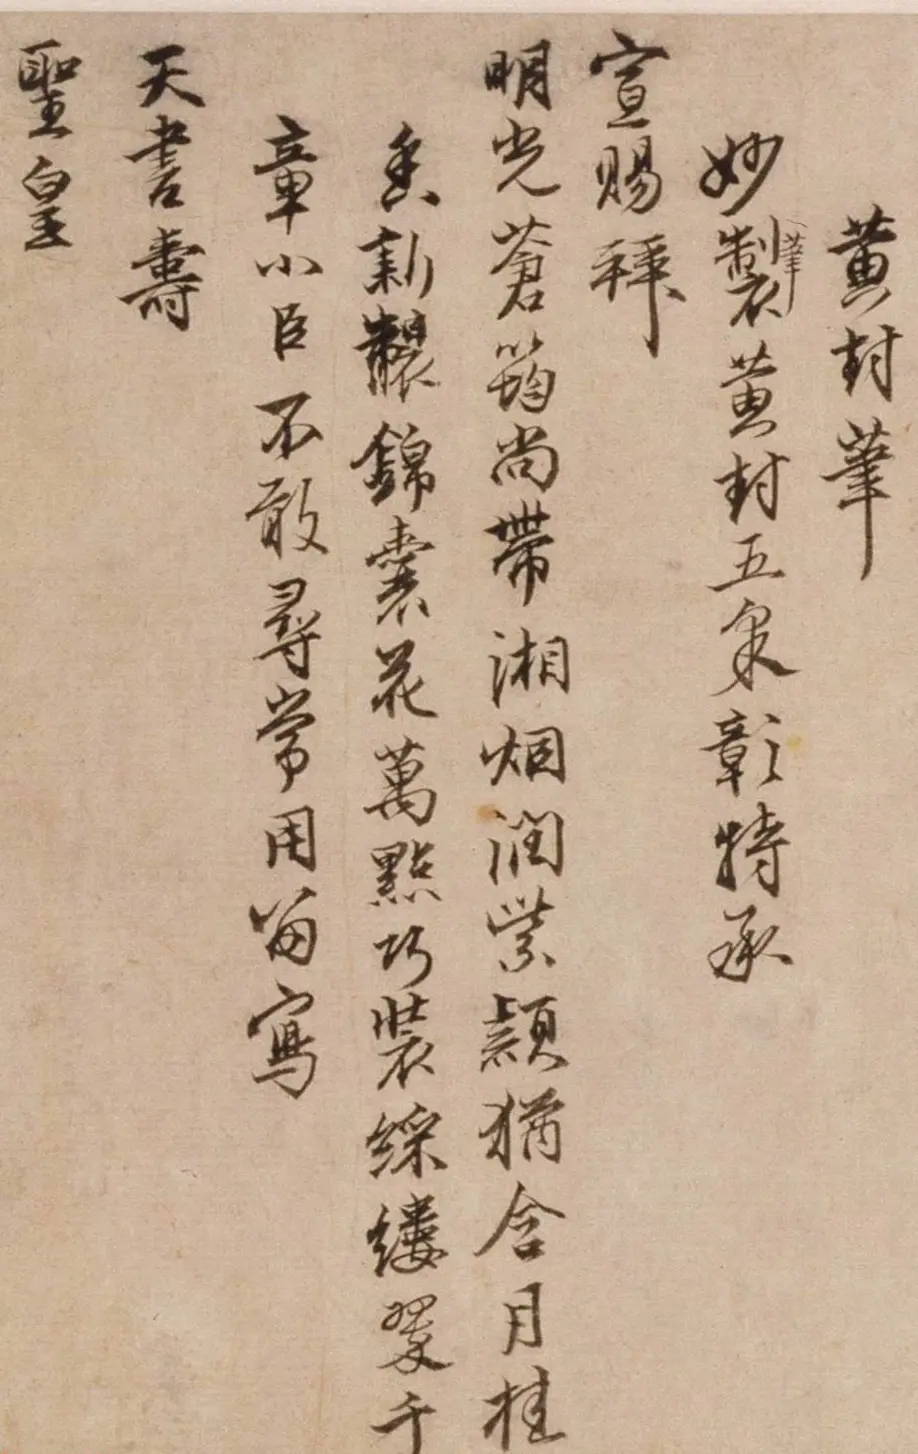 黄封筆
妙製筆黄封五采彰特承
宣賜拜
明光蒼筠尚帶湘烟潤紫穎猶含月桂
香新襲錦囊花萬點巧裝綵縷翠千
章小臣不敢尋常用留寫
天書壽
聖皇